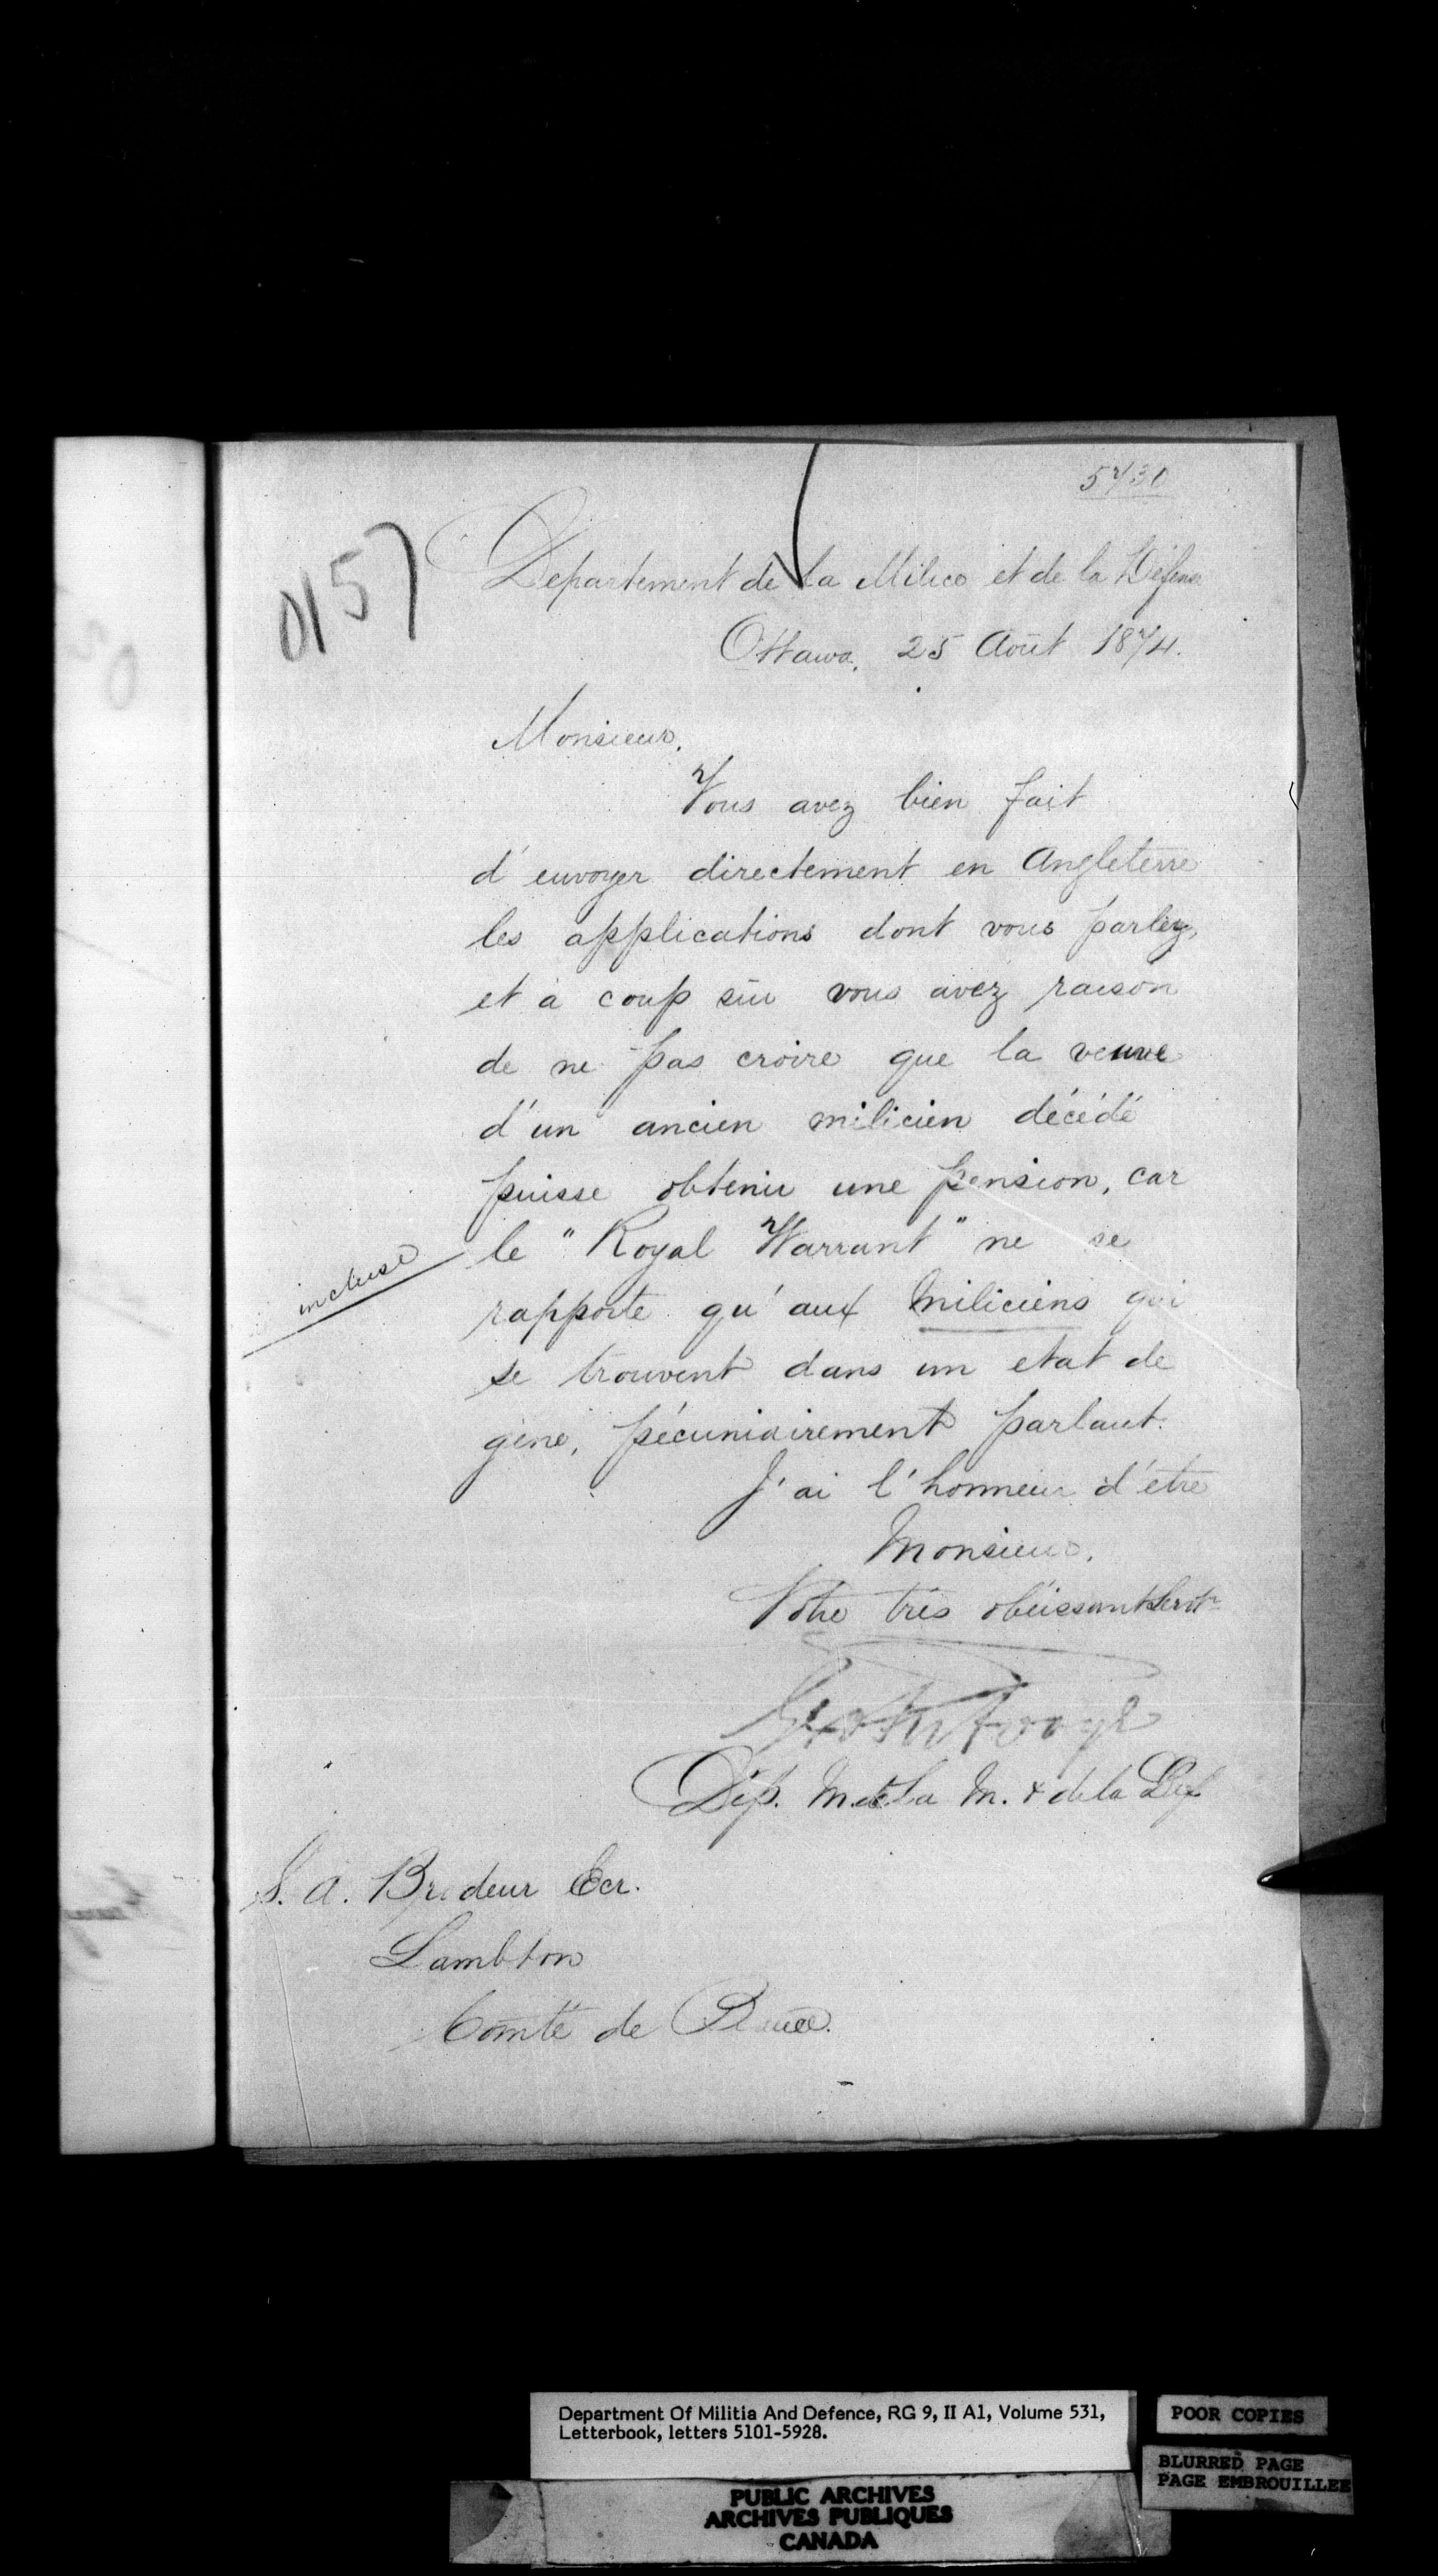 5730
0157
Departement de la Milice et de la Défense
Ottawa, 25 Août 1874.
Monsieur,
Vous avez bien fait
d'envoyer directement en Angleterre
les applications dont vous parlez,
et à coup sûr vous avez raison
de ne pas croire que la veuve
d'un ancien milicien décédé
puisse obtenir une pension, car
le "Royal Warrant" ne se
incluse
rapporte qu'aux Miliciens qui
se trouvent dans un etat de
gêne, pécuniairement parlant.
J'ai l'honneur d'être
Monsieur,
Votre très obéissant Servt
Dép. M. de la M. & de la Def
S. A. Brodeur Ecr.
Lambton
Comté de Beauce.
Department Of Militia And Defence, RG 9, II A1, Volume 531,
Letterbook, letters 5101-5928.
POOR COPIES
BLURRED PAGE
PAGE EMBROUILLEE
PUBLIC ARCHIVES
ARCHIVES PUBLIQUES
CANADA